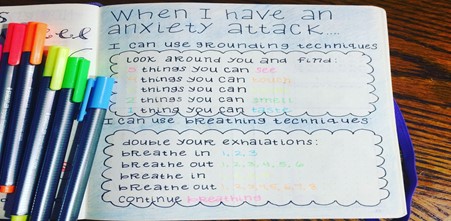 When I have an
anxiety attack....
I can use grounding techniques
look around you and find:
5 things you can see
things you can touch
things you can
2 things you can smell
1 thing you can taste
I can use breathing techniques
double your exhalations:
breathe in 1, 2, 3
breathe out 1, 2, 3, 4, 5, 6
breathe in
breathe out
continue breathing